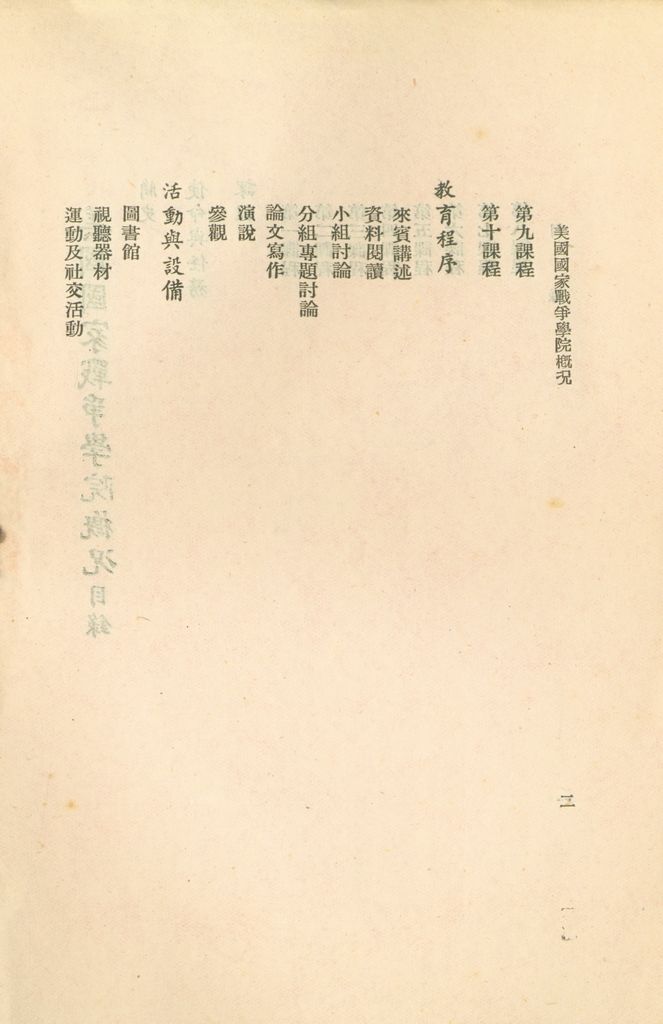 美國國家戰爭學院概況
二
第九課程
第十課程
教育程序
來賓講述
資料閱讀
小組討論
分組專題討論
論文寫作
演說
參觀
活動與設備
圖書館
視聽器材
運動及社交活動